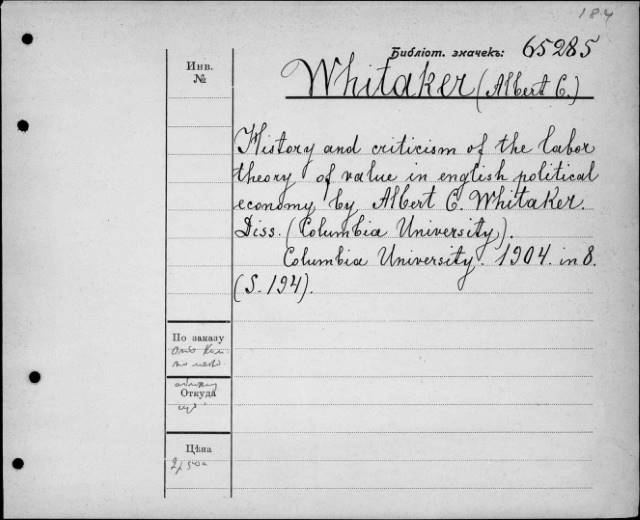 184
Библіот. значекъ: 65285
Инв.
№
Whitaker (Albert C.)
History and criticism of the labor
theory of value in english political
economy by Albert C. Whitaker.
Diss. (Columbia University).
Columbia University. 1904. in 8.
(S. 194).
По заказу
Откуда
Цѣна